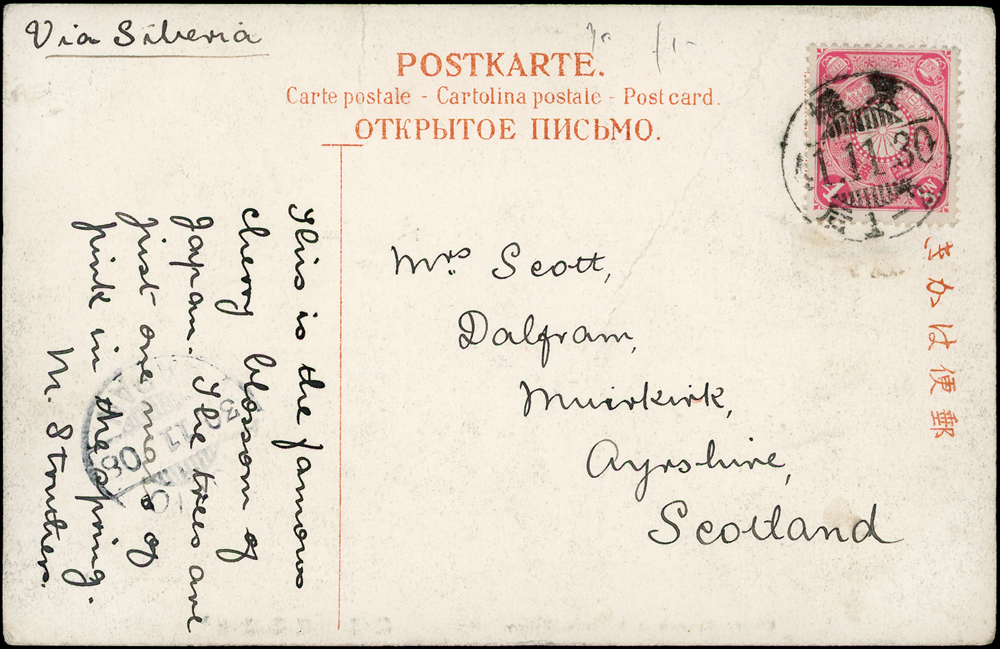 Via Siberia
POSTKARTE.
Carte postale - Cartolina postale - Post card.
ОТКРЫТОЕ ПИСЬМО.
11.11.30
郵便はかき
Mrs Scott,
Dalfram,
Muirkirk,
Ayrshire,
Scotland
This is the famous
cherry blossom of
Japan. The trees are
just one mass of
pink in the spring.
M. Struthers.